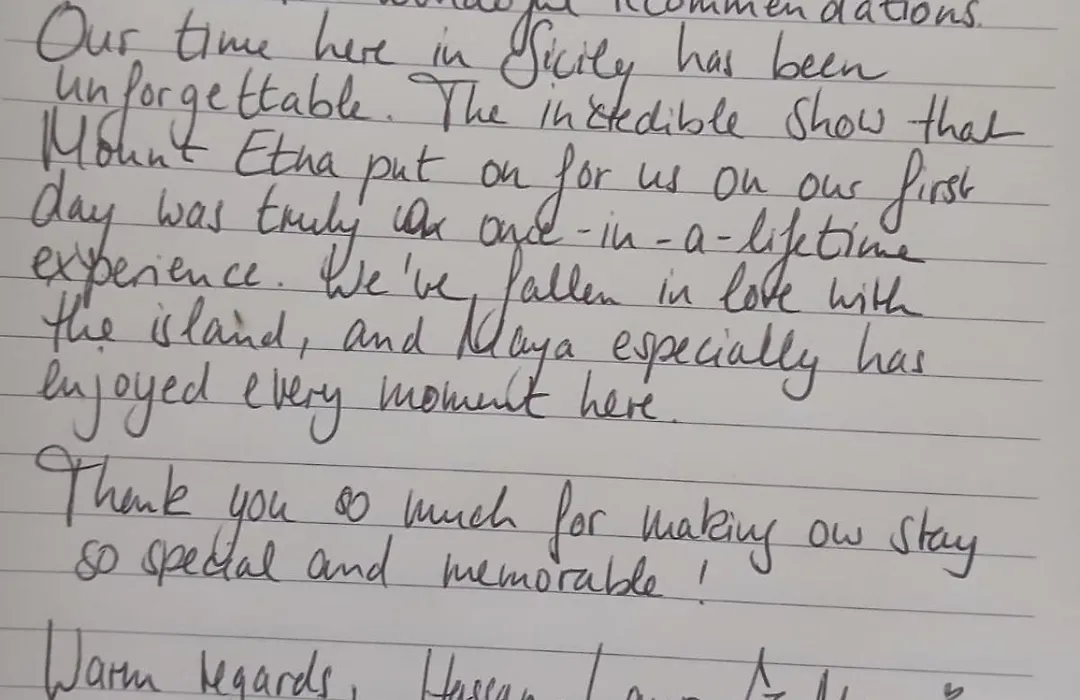 recommendations.
Our time here in Sicily has been
unforgettable. The incredible show that
Mount Etna put on for us on our first
day was truly a once-in-a-lifetime
experience. We've fallen in love with
the island, and Maya especially has
enjoyed every moment here.
Thank you so much for making our stay
so special and memorable!
Warm regards, Hassan